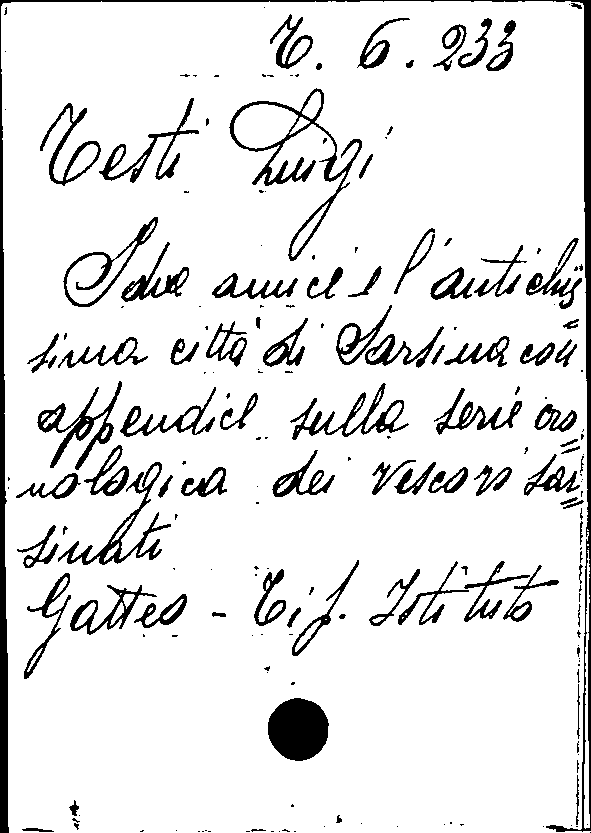 T. 6. 233
Testi Luigi
I due amici e l'antichis=
sima città di Sarsina con
appendice sulla serie cro=
nologica dei vescovi sar=
sinati
Gatteo - Tip. Istituto